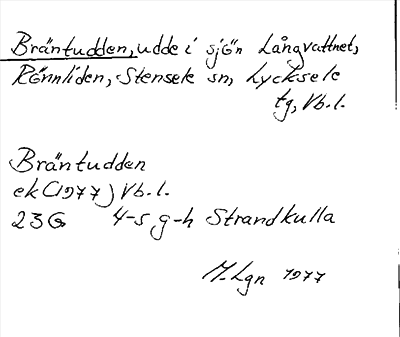 Bräntudden, udde i sjön Långvattnet,
Rönnliden, Stensele sn, Lycksele
tg, Vb.l.
Bräntudden
ek (1977) Vb.l.
23G 4-5 g-h Strandkulla
M.Lgn 1977